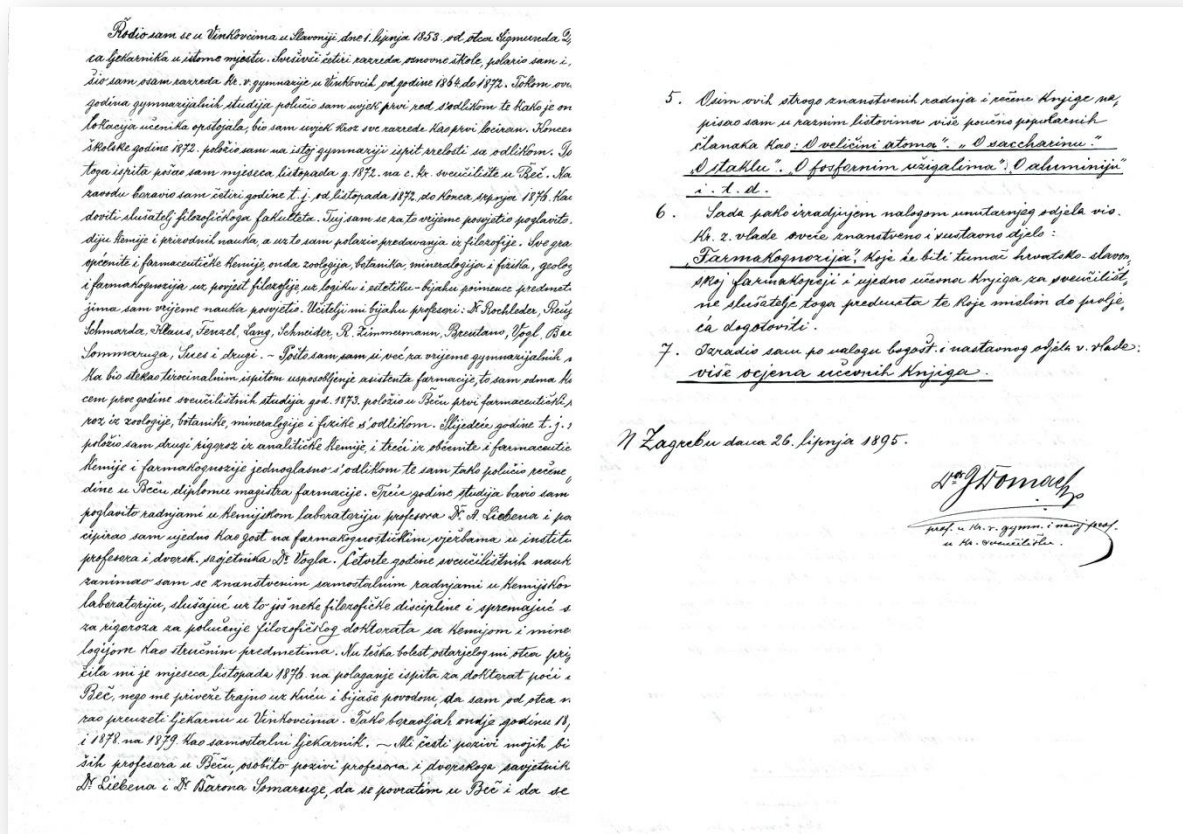 Rodio sam se u Vinkovcima u Slavoniji dne 1. lipnja 1853. od otca Sigmunda D,
ca ljekarnika u istome mjestu. Svršivši četiri razreda osnovne škole, polazio sam i,
šio sam osam razreda kr. v. gymnazije u Vinkovcih od godine 1864. do 1872. Tokom ov
godina gymnazijalnih studija polučio sam uvjek prvi red s'odlikom te kako je on
lokacija učenika opstojala, bio sam uvjek kroz sve razrede kao prvi lociran. Koncem
školske godine 1872. položio sam na istoj gymnaziji ispit zrelosti sa odlikom. Po
toga ispita pošao sam mjeseca listopada g. 1872. na c. kr. sveučilište u Beč. Na
zavodu boravio sam četiri godine t. j. od listopada 1872. do konca srpnja 1876. kao
doviti slušatelj filozofičkoga fakulteta. Tuj sam se za to vrijeme posvjetio poglavito
diju kemije i prirodnih nauka, a uz to sam polazio predavanja iz filozofije. Sve gra
općenite i farmaceutičke kemije, onda zoologija, botanika, mineralogija i fizika, geolog
i farmakognozija uz povjest filozofije, uz logiku i estetiku – bijahu poimence predmeti
jima sam vrijeme nauka posvjetio. Učitelji mi bijahu profesori: Dr. Rochleder,
Schmarda, Klaus, Fenzel, Lang, Schneider, R. Zimmermann, Brentano, Vogl,
Sommaruga, Sues i drugi. – Pošto sam sam si već za vrijeme gymnazijalnih
ka bio stekao tirocinalnim ispitom usposobljenje asistenta farmacije, to sam odma
cem prve godine sveučilištnih studija god. 1873. položio u Beču prvi farmaceutički
roz iz zoologije, botanike, mineralogije i fizike s'odlikom. Slijedeće godine t. j.
položio sam drugi rigoroz iz analitičke kemije, i treći iz obćenite i farmaceutič
kemije i farmakognozije jednoglasno s'odlikom te sam tako polučio rečene
dine u Beču diplomu magistra farmacije. Treće godine studija bavio sam
poglavito radnjami u kemijskom laboratoriju profesora Dr. A. Liebena i pa
cipirao sam ujedno kao gost na farmakognostičkim vježbama u institu
profesora i dvorsk. savjetnika Dr. Vogla. Četvrte godine sveučilištnih nauk
zanimao sam se znanstvenim samostalnim radnjami u kemijskom
laboratoriju, slušajuć uz to još neke filozofičke discipline i spremajuć s
za rigoroza za polučenje filozofičkog doktorata sa kemijom i mine
logijom kao stručnim predmetima. Nu teška bolest ostarjelog mi otca prij
čila mi je mjeseca listopada 1876. na polaganje ispita za doktorat poći u
Beč, nego me priveže trajno uz kuću i bijaše povodom, da sam od otca m
rao preuzeti ljekarnu u Vinkovcima. Tako boravljah ondje godinu 18,
i 1878. na 1879. kao samostalni ljekarnik. – Ali česti pozivi mojih bi
ših profesora u Beču, osobito pozivi profesora i dvorskoga savjetnik
Dr. Liebena i Dr. Barona Somaruge, da se povratim u Beč i da se
5. Osim ovih strogo znanstvenih radnja i rečene knjige na,
pisao sam u raznim listovima više poučno popularnih
članaka kao: „O veličini atoma". „O saccharinu".
„O staklu". „O fosfornim užigalima". „O aluminiju"
i. t. d.
6. Sada pako izradjujem nalogom unutarnjeg odjela vis.
kr. z. vlade sveže znanstveno i sustavno djelo:
„Farmakognozija", koje će biti tumač hrvatsko-slavon,
skoj farmakopeji i ujedno učevna knjiga za sveučilišt,
ne slušatelje toga predmeta te koje mislim do prolje,
ća dogotoviti.
7. Izradio sam po nalogu bogošt. i nastavnog odjela v. vlade:
više ocjena učevnih knjiga.
U Zagrebu dana 26. lipnja 1895.
Dr. J Domac
prof. u kr. v. gymn. i prof.
u kr. sveučilištu.